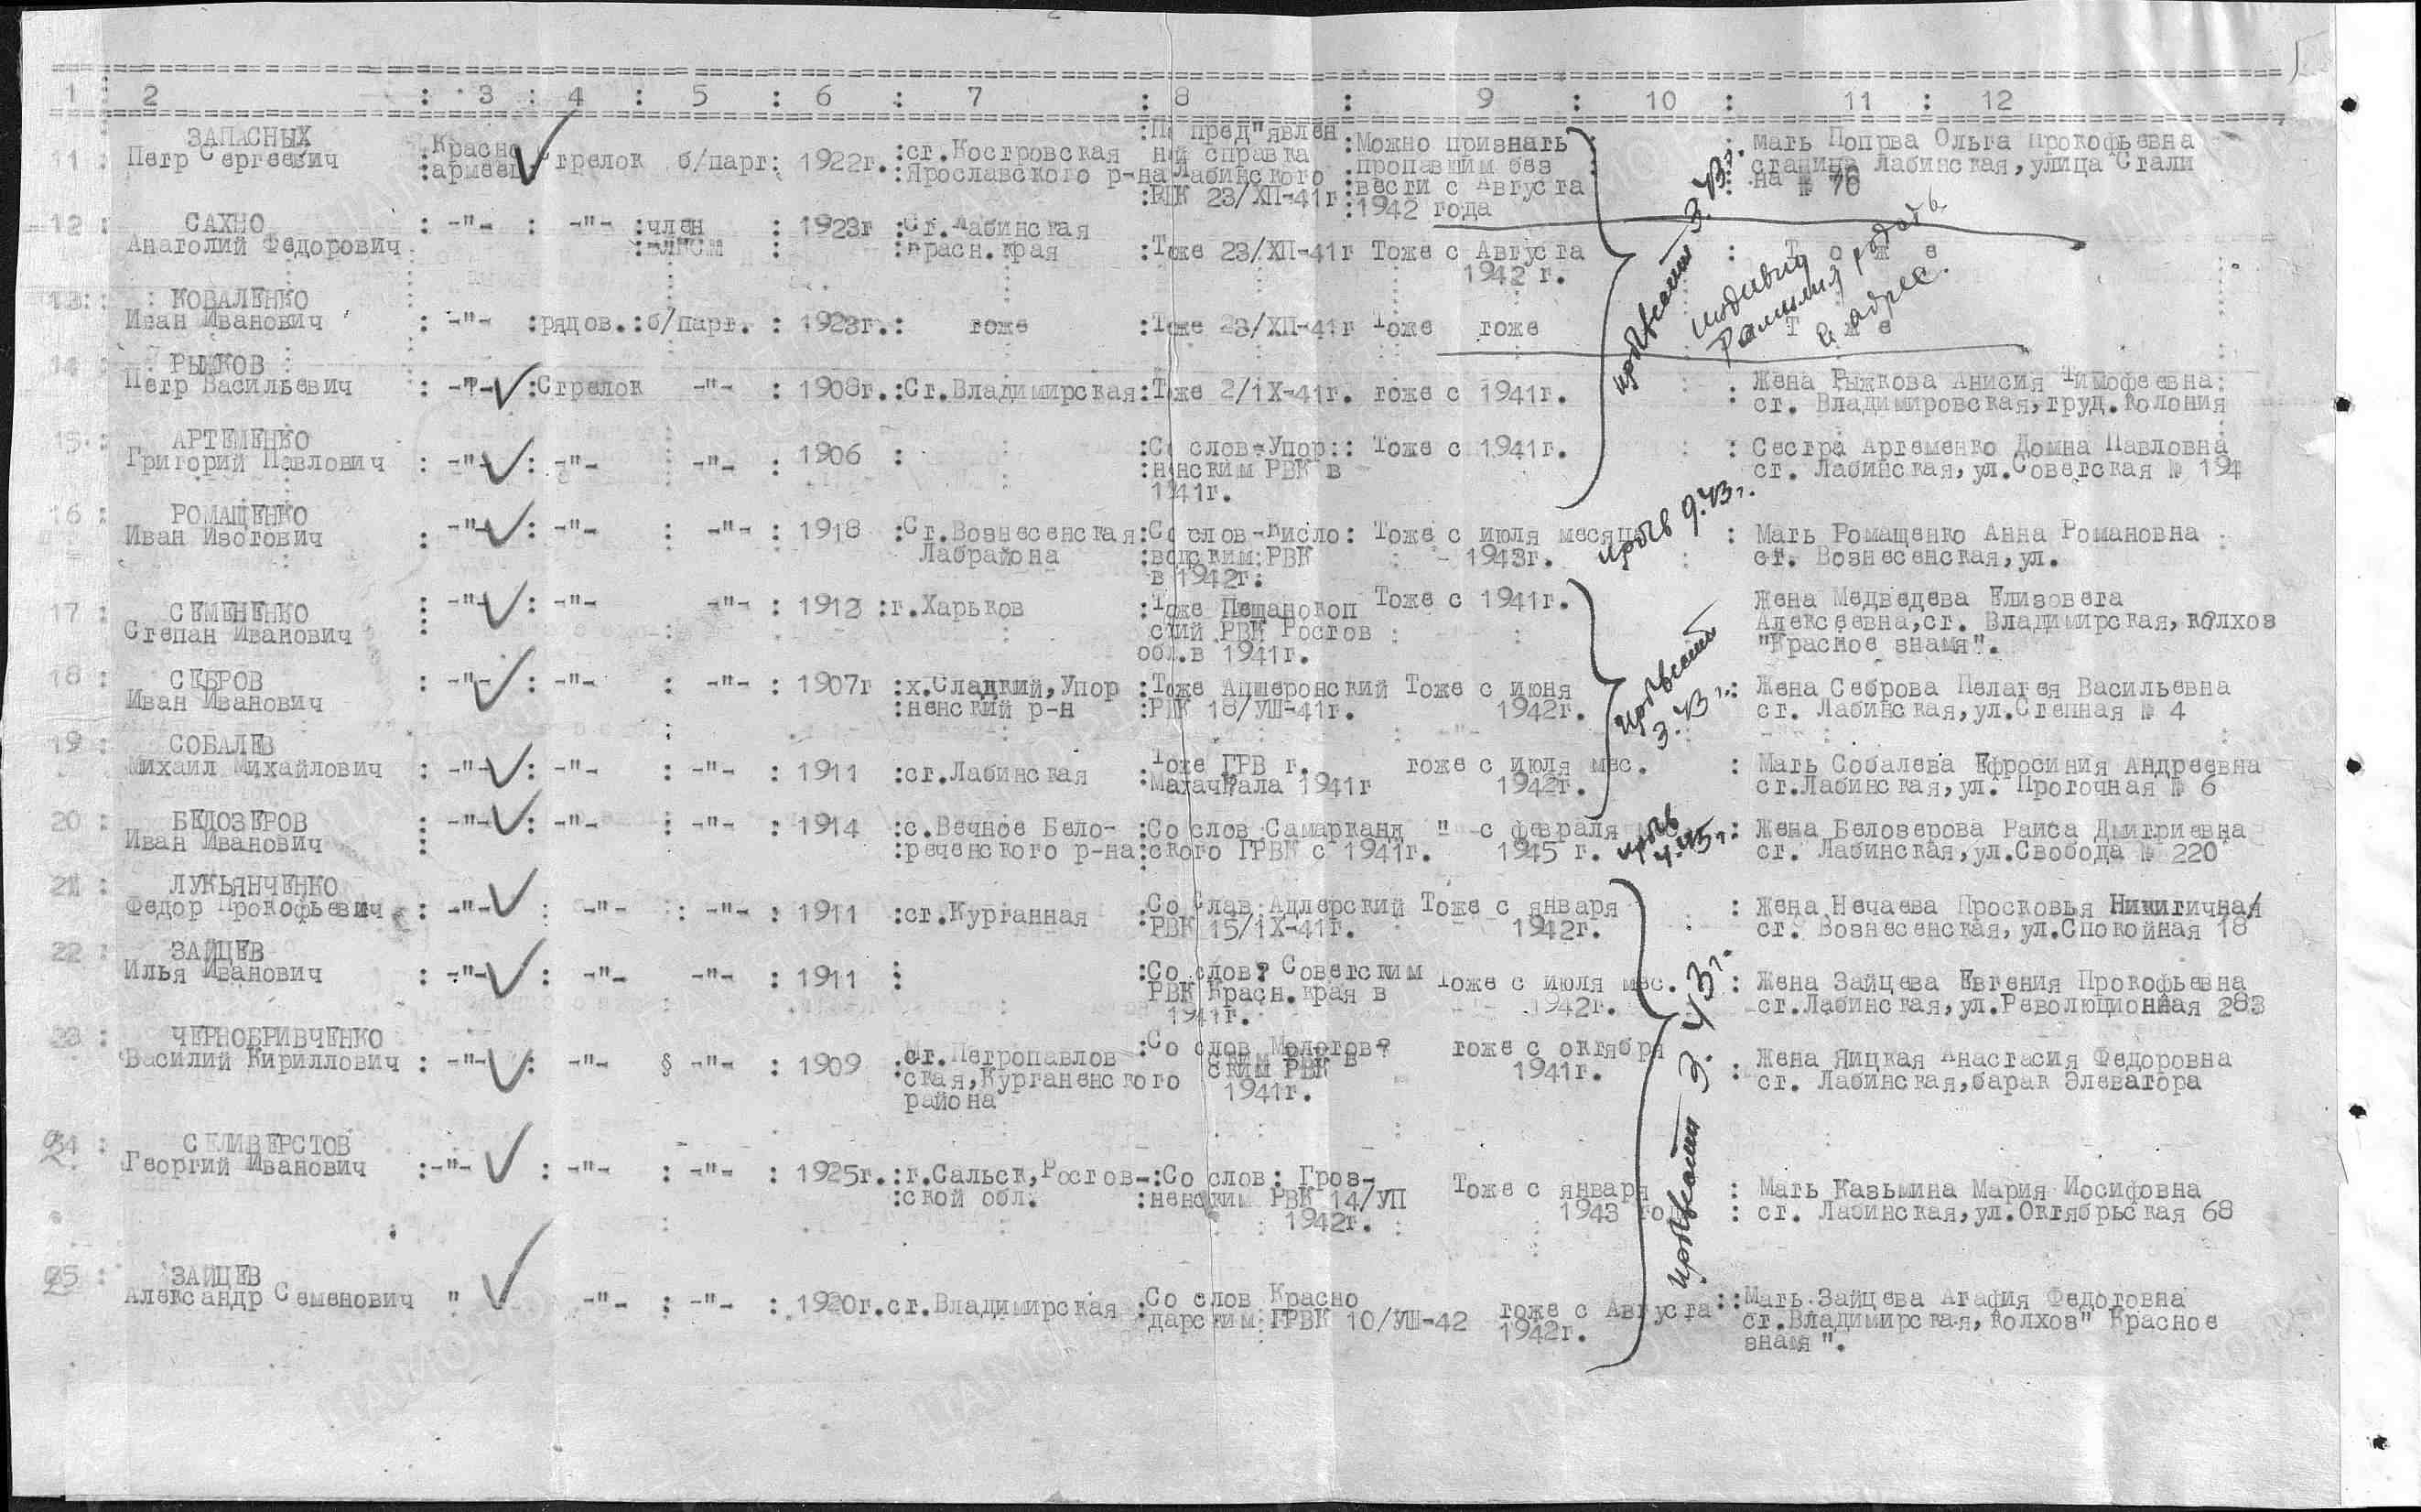 1 : 2 : 3 : 4 : 5 : 6 : 7 : 8 : 9 : 10 : 11 : 12
11 : ЗАПАСНЫХ
Петр Сергеевич : Красно
:армеец Стрелок б/парт: 1922г. :ст.Костровская
:Ярославского р-на
:По пред"явлен
ной справка
Лабинского
:РВК 23/ХП-41г
:Можно признать
.пропавшим без
:вести с Августа
:1942 года
: мать Ольга Прокофьевна
станица Лабинская,улица Стали
на № 76
12 : САХНО
Анатолий Федорович : -"- : -"- :член
:ВЛКСМ : 1923г :Ст.Лабинская
:Красн.края :Тоже 23/ХП-41г Тоже с Августа
1942 г. : Т о ж е
13: КОВАЛЕНКО
Иван Иванович : -"- :рядов.:б/парт. : 1923г.: тоже :Тоже 23/ХП-41г Тоже тоже Т ж е
14 : РЫЖКОВ
Петр Васильевич : -"- :Стрелок -"- : 1908г.:Ст.Владимирская:Тоже 2/1Х-41г. тоже с 1941г. : Жена Рыжкова Анисия Тимофеевна
ст. Владимировская,труд.Колония
15 : АРТЕМЕНКО
Григорий Павлович : -"- : -"- -"- : 1906 : :Со слов-Упор:
:ненским РВК в
1941г. Тоже с 1941г. : Сестра Артеменко Домна Павловна
ст. Лабинская,ул.Советская № 194
16 : РОМАЩЕНКО
Иван Изотович : -"- : -"- : -"- : 1918 :Ст.Вознесенская
Лабрайона :Со слов-Кисло:
:водским:РВК
в 1942г: Тоже с июля месяца
1943г. : Мать Ромащенко Анна Романовна
ст. Вознесенская,ул.
17 : СЕМЕНЕНКО
Степан Иванович : -"- : -"- -"- : 1912 :г.Харьков :Тоже Пещанокоп
ский РВК Ростов
обл.в 1941г. Тоже с 1941г. Жена Медведева Елизовета
Алексеевна,ст. Владимирская,колхоз
"Красное знамя".
18 : СЕБРОВ
Иван Иванович : -"- : -"- : -"- : 1907г :х.Сладкий,Упор
:ненский р-н :Тоже Апшеронский
:РВК 18/УШ-41г. Тоже с июня
1942г. : Жена Себрова Пелагея Васильевна
ст. Лабинская,ул.Степная № 4
19 : СОБАЛЕВ
Михаил Михайлович : -"- : -"- : -"- : 1911 :ст.Лабинская :Тоже ГРВ г.
:Махачкала 1941г тоже с июля мес.
1942г. : Мать Собалева Ефросиния Андреевна
ст.Лабинская,ул. Проточная № 6
20 : БЕЛОЗЕРОВ
Иван Иванович : -"- : -"- : -"- : 1914 :с.Вечное Бело-
:реченского р-на :Со слов Самарканд
:ского ГРВК с 1941г. " с февраля
1945 г. : Жена Белозерова Раиса Дмитриевна
ст. Лабинская,ул.Свобода № 220
21 : ЛУКЬЯНЧЕНКО
Федор Прокофьевич : -"- : -"- : -"- : 1911 :ст.Курганная :Со Слав:Адлерский
:РВК 15/1Х-41г. Тоже с января
1942г. : Жена Нечаева Просковья Никитична
ст. Вознесенская,ул.Спокойная 18
22 : ЗАЙЦЕВ
Илья Иванович : -"- : -"- -"- : 1911 : :Со слов? Советским
РВК Красн.края в
1941г. Тоже с июля мес.
1942г. : Жена Зайцева Евгения Прокофьевна
ст.Лабинская,ул.Революционная 283
23 : ЧЕРНОБРИВЧЕНКО
Василий Кириллович : -"- : -"- § -"- : 1909 ст.Петропавлов
:ская,Курганенского
района :Со слов Молотов?
ским РВК в
1941г. тоже с октября
1941г. : Жена Яицкая Анастасия Федоровна
ст. Лабинская,барак Элеватора
24 : СЕЛИВЕРСТОВ
Георгий Иванович :-"- : -"- : -"- : 1925г.:г.Сальск,Ростов-
:ской обл. :Со слов: Гроз-
:ненским РВК 14/УП
1942г. Тоже с января
1943 : Мать Казьмина Мария Иосифовна
: ст. Лабинская,ул.Октябрьская 68
25 : ЗАЙЦЕВ
Александр Семенович " -"- : -"- : 1920г.ст.Владимирская :Со слов Красно
дарским:ГРВК 10/УШ-42 тоже с Августа
1942г. ::Мать Зайцева Агафия Федотовна
ст.Владимирская,Колхоз" Красное
знамя".
3.43г.
фамилия
и адрес.
9.43г.
3.43г.
4.45г.